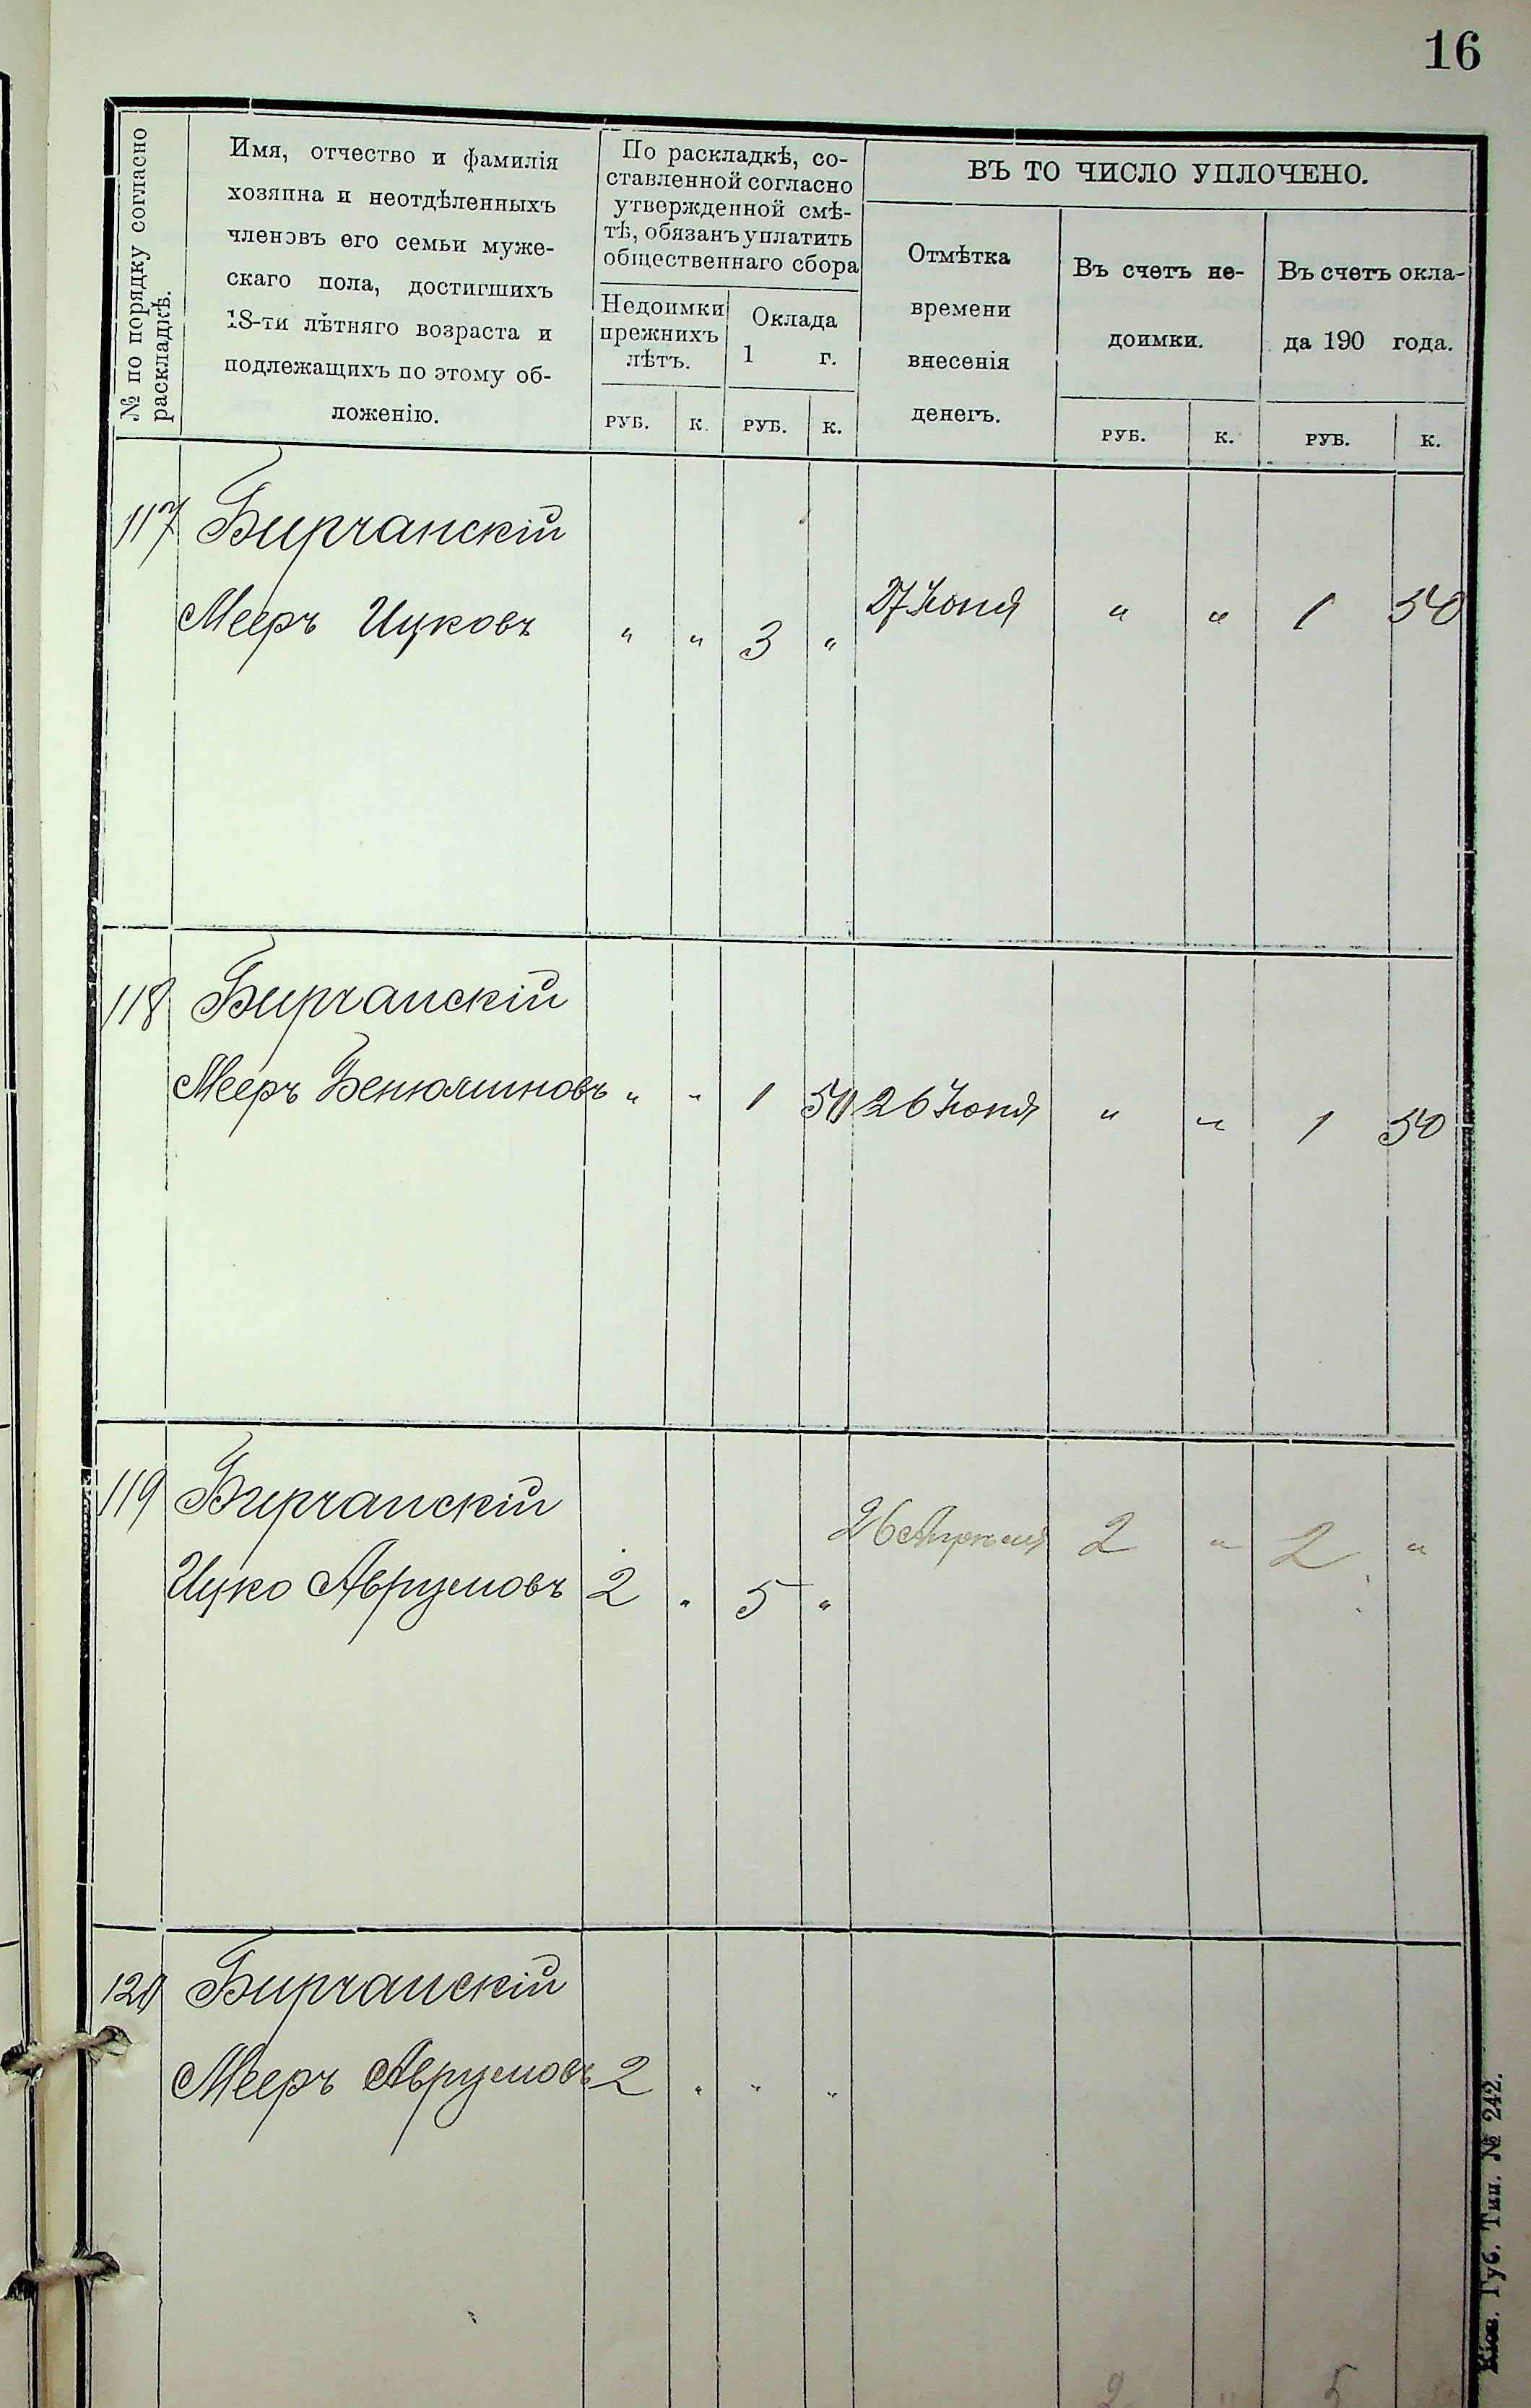 16
№ по порядку согласно
раскладкѣ.
Имя, отчество и фамилія
хозяина и неотдѣленныхъ
членовъ его семьи муже-
скаго пола, достигшихъ
18-ти лѣтняго возраста и
подлежащихъ по этому об-
ложенію.
По раскладкѣ, со-
ставленной согласно
утвержденной смѣ-
тѣ, обязанъ уплатить
общественнаго сбора
Недоимки
прежнихъ
лѣтъ.
Оклада
1 г.
ВЪ ТО ЧИСЛО УПЛОЧЕНО.
Отмѣтка
времени
внесенія
денегъ.
Въ счетъ не-
доимки.
Въ счетъ окла-
да 190 года.
РУБ. К. РУБ. К. РУБ. К. РУБ. К.
117 Бирчанскій
Мееръ Ицковъ " " 3 " 27 Іюня " " 1 50
118 Бирчанскій
Мееръ Бенюминовъ " " 1 50 26 Іюня " " 1 50
119 Бирчанскій
26 Апрѣля 2 " 2 "
Ицко Аврумовъ 2 " 5 "
120 Бирчанскій
Мееръ Аврумовъ 2 " " "
2 " 5
Кіев. Губ. Тип. № 242.